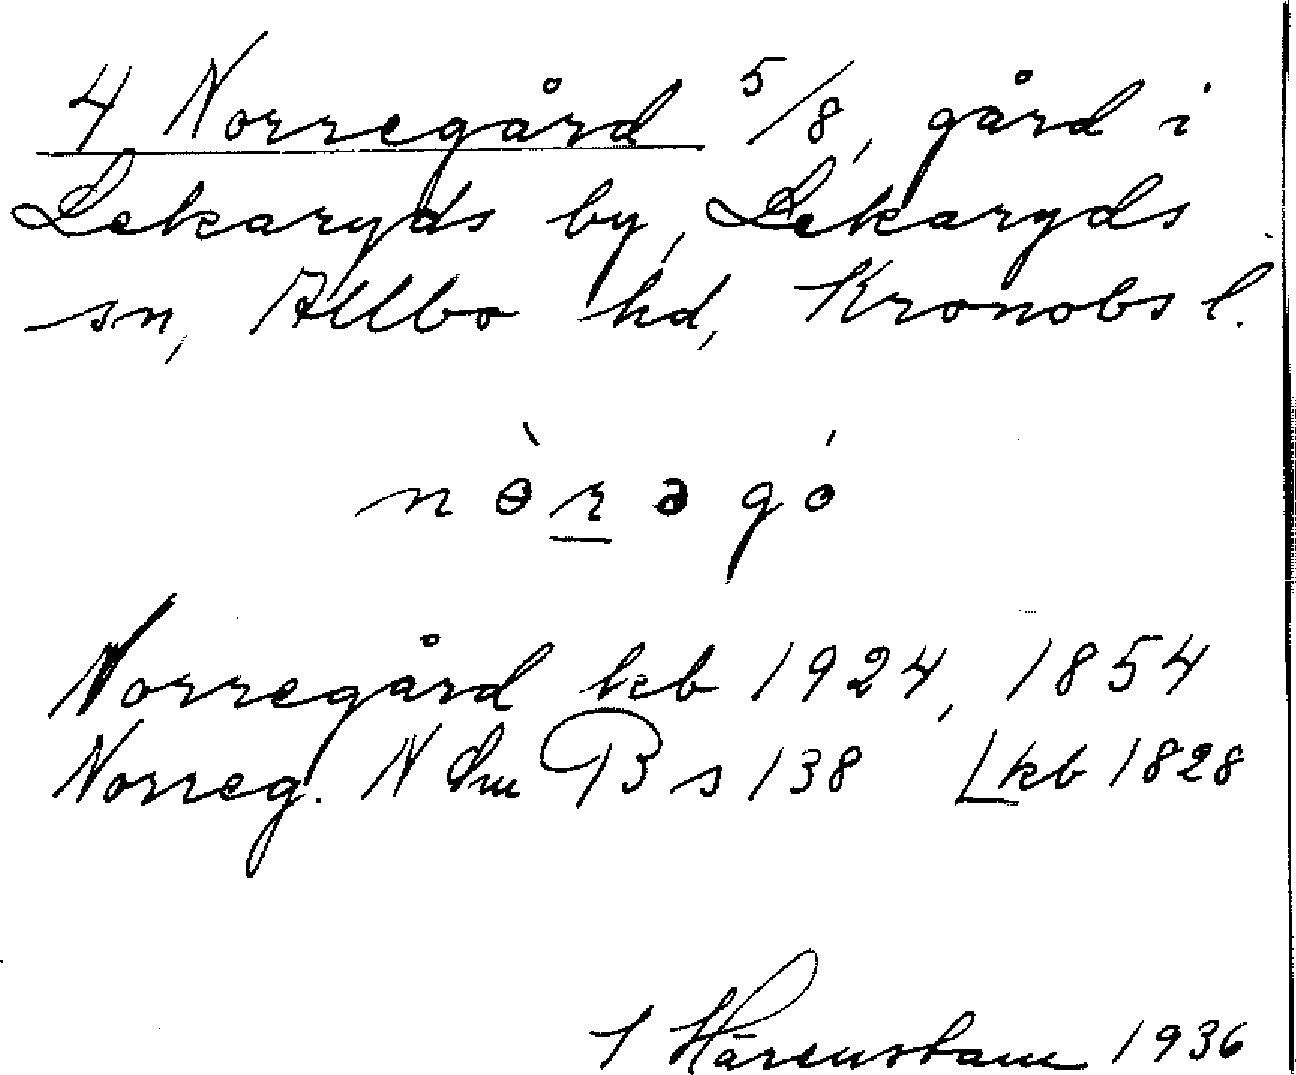 4 Norregård 5/8, gård i
Lekaryds by, Lekaryds
sn, Allbo hd, Kronobs l.
nɵ̀rəgó
Norregård kb 1924, 1854
Norreg. N Sm B s 138 Lkb 1828
Härenstam 1936